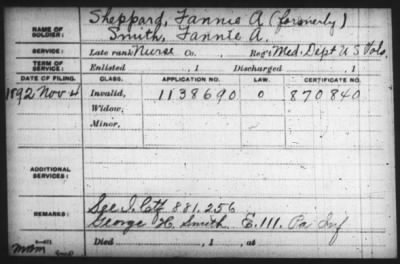 Sheppard, Fannie A (formerly)
NAME OF SOLDIER: Smith, Fannie A.
SERVICE: Late rank Nurse Co. , Reg't Med. Dept U S Vols.
TERM OF SERVICE: Enlisted , 1 Discharged , 1
DATE OF FILING. CLASS. APPLICATION NO. LAW. CERTIFICATE NO.
1892 Nov 4 Invalid, 1138690 O 870840
Widow,
Minor,
ADDITIONAL SERVICES:
REMARKS: See I. Ctf 881.256
George H. Smith E. 111. Pa Inf
Died , 1 , at